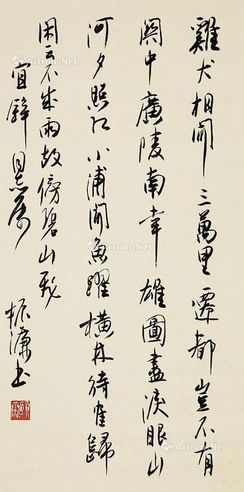 雞犬相聞三萬里遷都豈不有
關中廣陵南幸雄圖盡淚眼山
河夕照紅小浦聞魚躍橫林待隺歸
閑雲不成雨故傍碧山飛
宜 同志屬
振濂書
Artron.Net